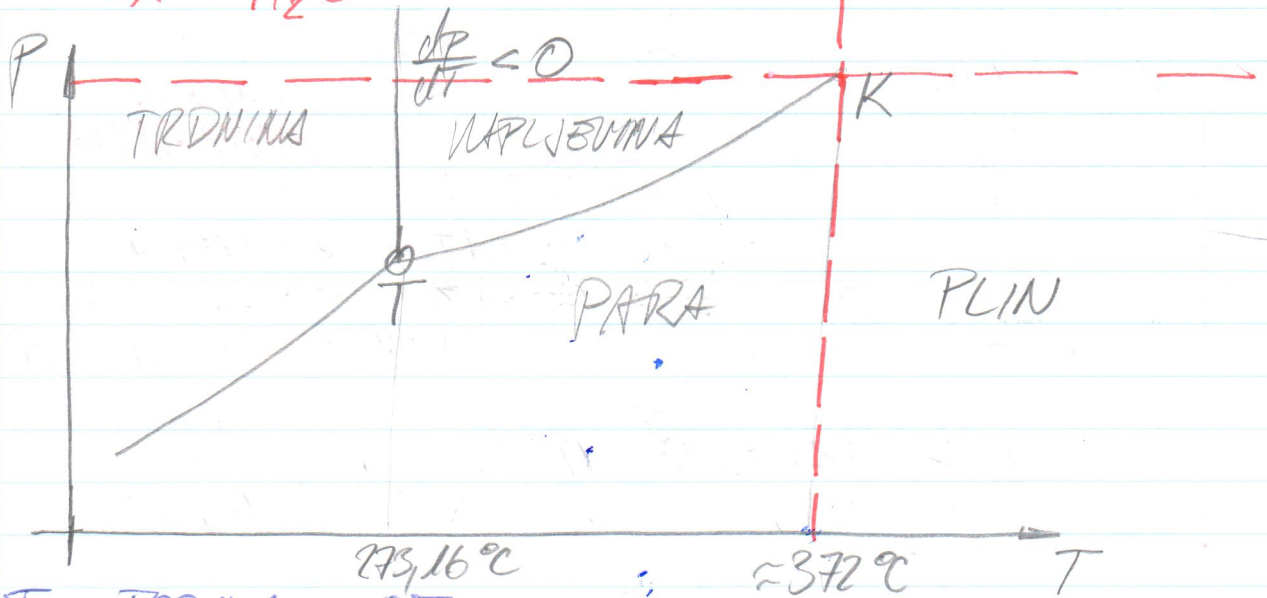 H₂O
P
dP/dT < 0
K
TRDNINA
KAPLJEVINA
T
PARA
PLIN
273,16°C
≈372°C
T